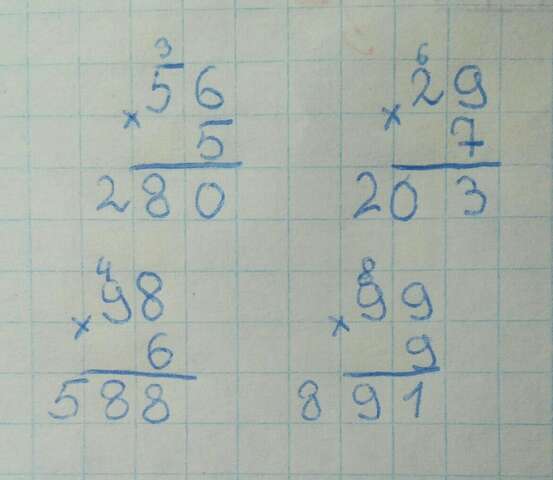 3
56
× 5
280
6
29
× 7
203
4
98
× 6
588
8
99
× 9
891